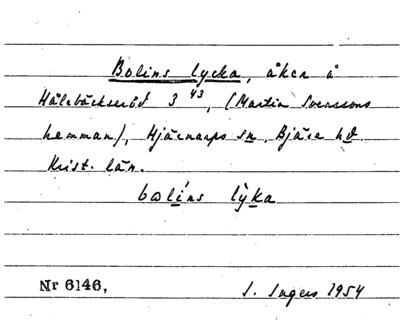 Bolins lycka, åker å
Hålebäckseröd 3 43, (Martin Svenssons
hemman), Hjärnarps sn, Bjäre hd.
Krist. län.
bolíns lỳka
Nr 6146, I. Ingers 1954